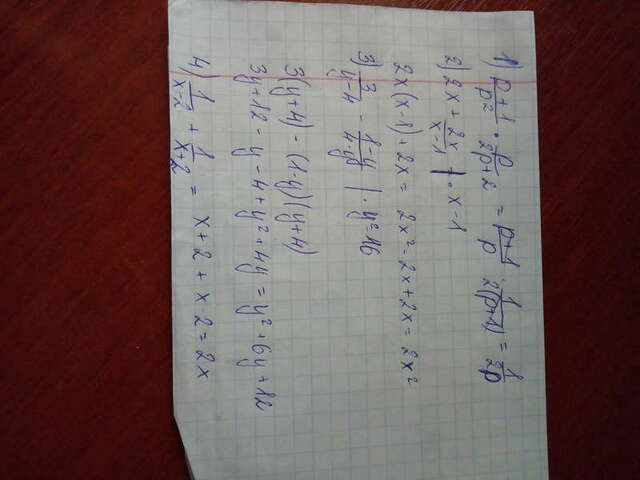 1) (p+1)/p² · p/(2p+2) = (p+1)/p · 1/(2(p+1)) = 1/(2p)
2) 2x + 2x/(x-1) | · x-1
2x(x-1) + 2x = 2x² - 2x + 2x = 2x²
3) 3/(y-4) - | · y² 16
3(y+4) - (1-y)(y+4)
3y + 12 - y - 4 + y² + 4y = y² + 6y + 12
4) 1/(x-2) + 1/(x+2) = x + 2 + x 2 = 2x